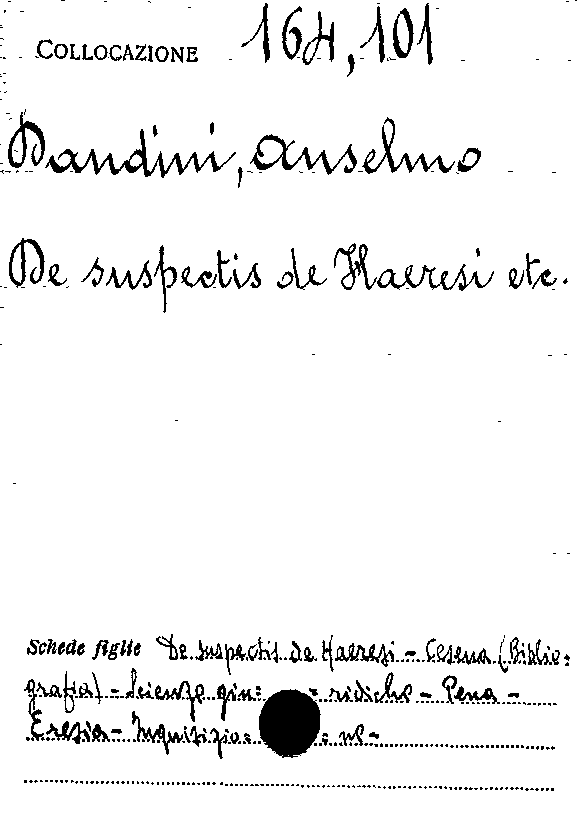 COLLOCAZIONE 164,101
Dandini, Anselmo
De suspectis de Haeresi etc.
Schede figlie De suspectis de Haeresi - Cesena (Biblio=
grafia) - Scienze giu= = ridiche - Pena -
Eresia - Inquisizio= = ne -